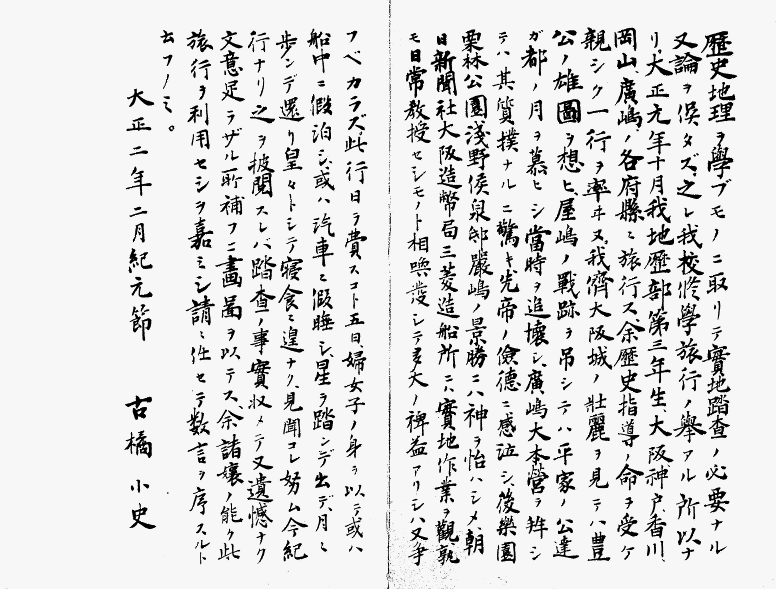 歴史地理ヲ學ブモノニ取リテ實地踏査ノ必要ナル
又論ヲ俟タズ、之レ我校修學旅行ノ擧アル所以ナ
リ、大正元年十月我地歴部第三年生、大阪神戸、香川、
岡山、廣嶋ノ各府縣ニ旅行ス、余歴史指導ノ命ヲ受ケ
親シク一行ヲ率ヰ又我儕大阪城ノ壮麗ヲ見テハ豊
公ノ雄圖ヲ想ヒ屋嶋ノ戰跡ヲ吊シテハ平家ノ公達
ガ都ノ月ヲ慕ヒシ當時ヲ追壊シ、廣嶋大本營ヲ拜シ
テハ其質撲ナルニ驚キ先帝ノ儉德ニ感泣シ、後樂園
栗林公園淺野侯泉邸嚴嶋ノ景勝ニハ神ヲ怡ハシメ、朝
日新聞社大阪造幣局三菱造船所ニハ實地作業ヲ觀、孰
モ日常教授セシモノト相興發シテ多大ノ裨益アリシハ又爭
フベカラズ此行日ヲ費スコト五日、婦女子ノ身ヲ以テ或ハ
船中ニ假泊シ、或ハ汽車ニ假睡シ、星ヲ踏ンデ出デ、月ニ
歩ンデ還リ皇々トシテ寝食ニ遑ナク、見聞コレ努ム今紀
行ナリ之ヲ披閲スレバ踏査ノ事實収メテ又遺憾ナク
文意足ラザル所補フニ畫圖ヲ以テス、余諸嬢ノ能ク此
旅行ヲ利用セシヲ嘉ミシ請ニ任セテ数言ヲ序スルト
云フノミ。
大正二年二月紀元節
古橘小史